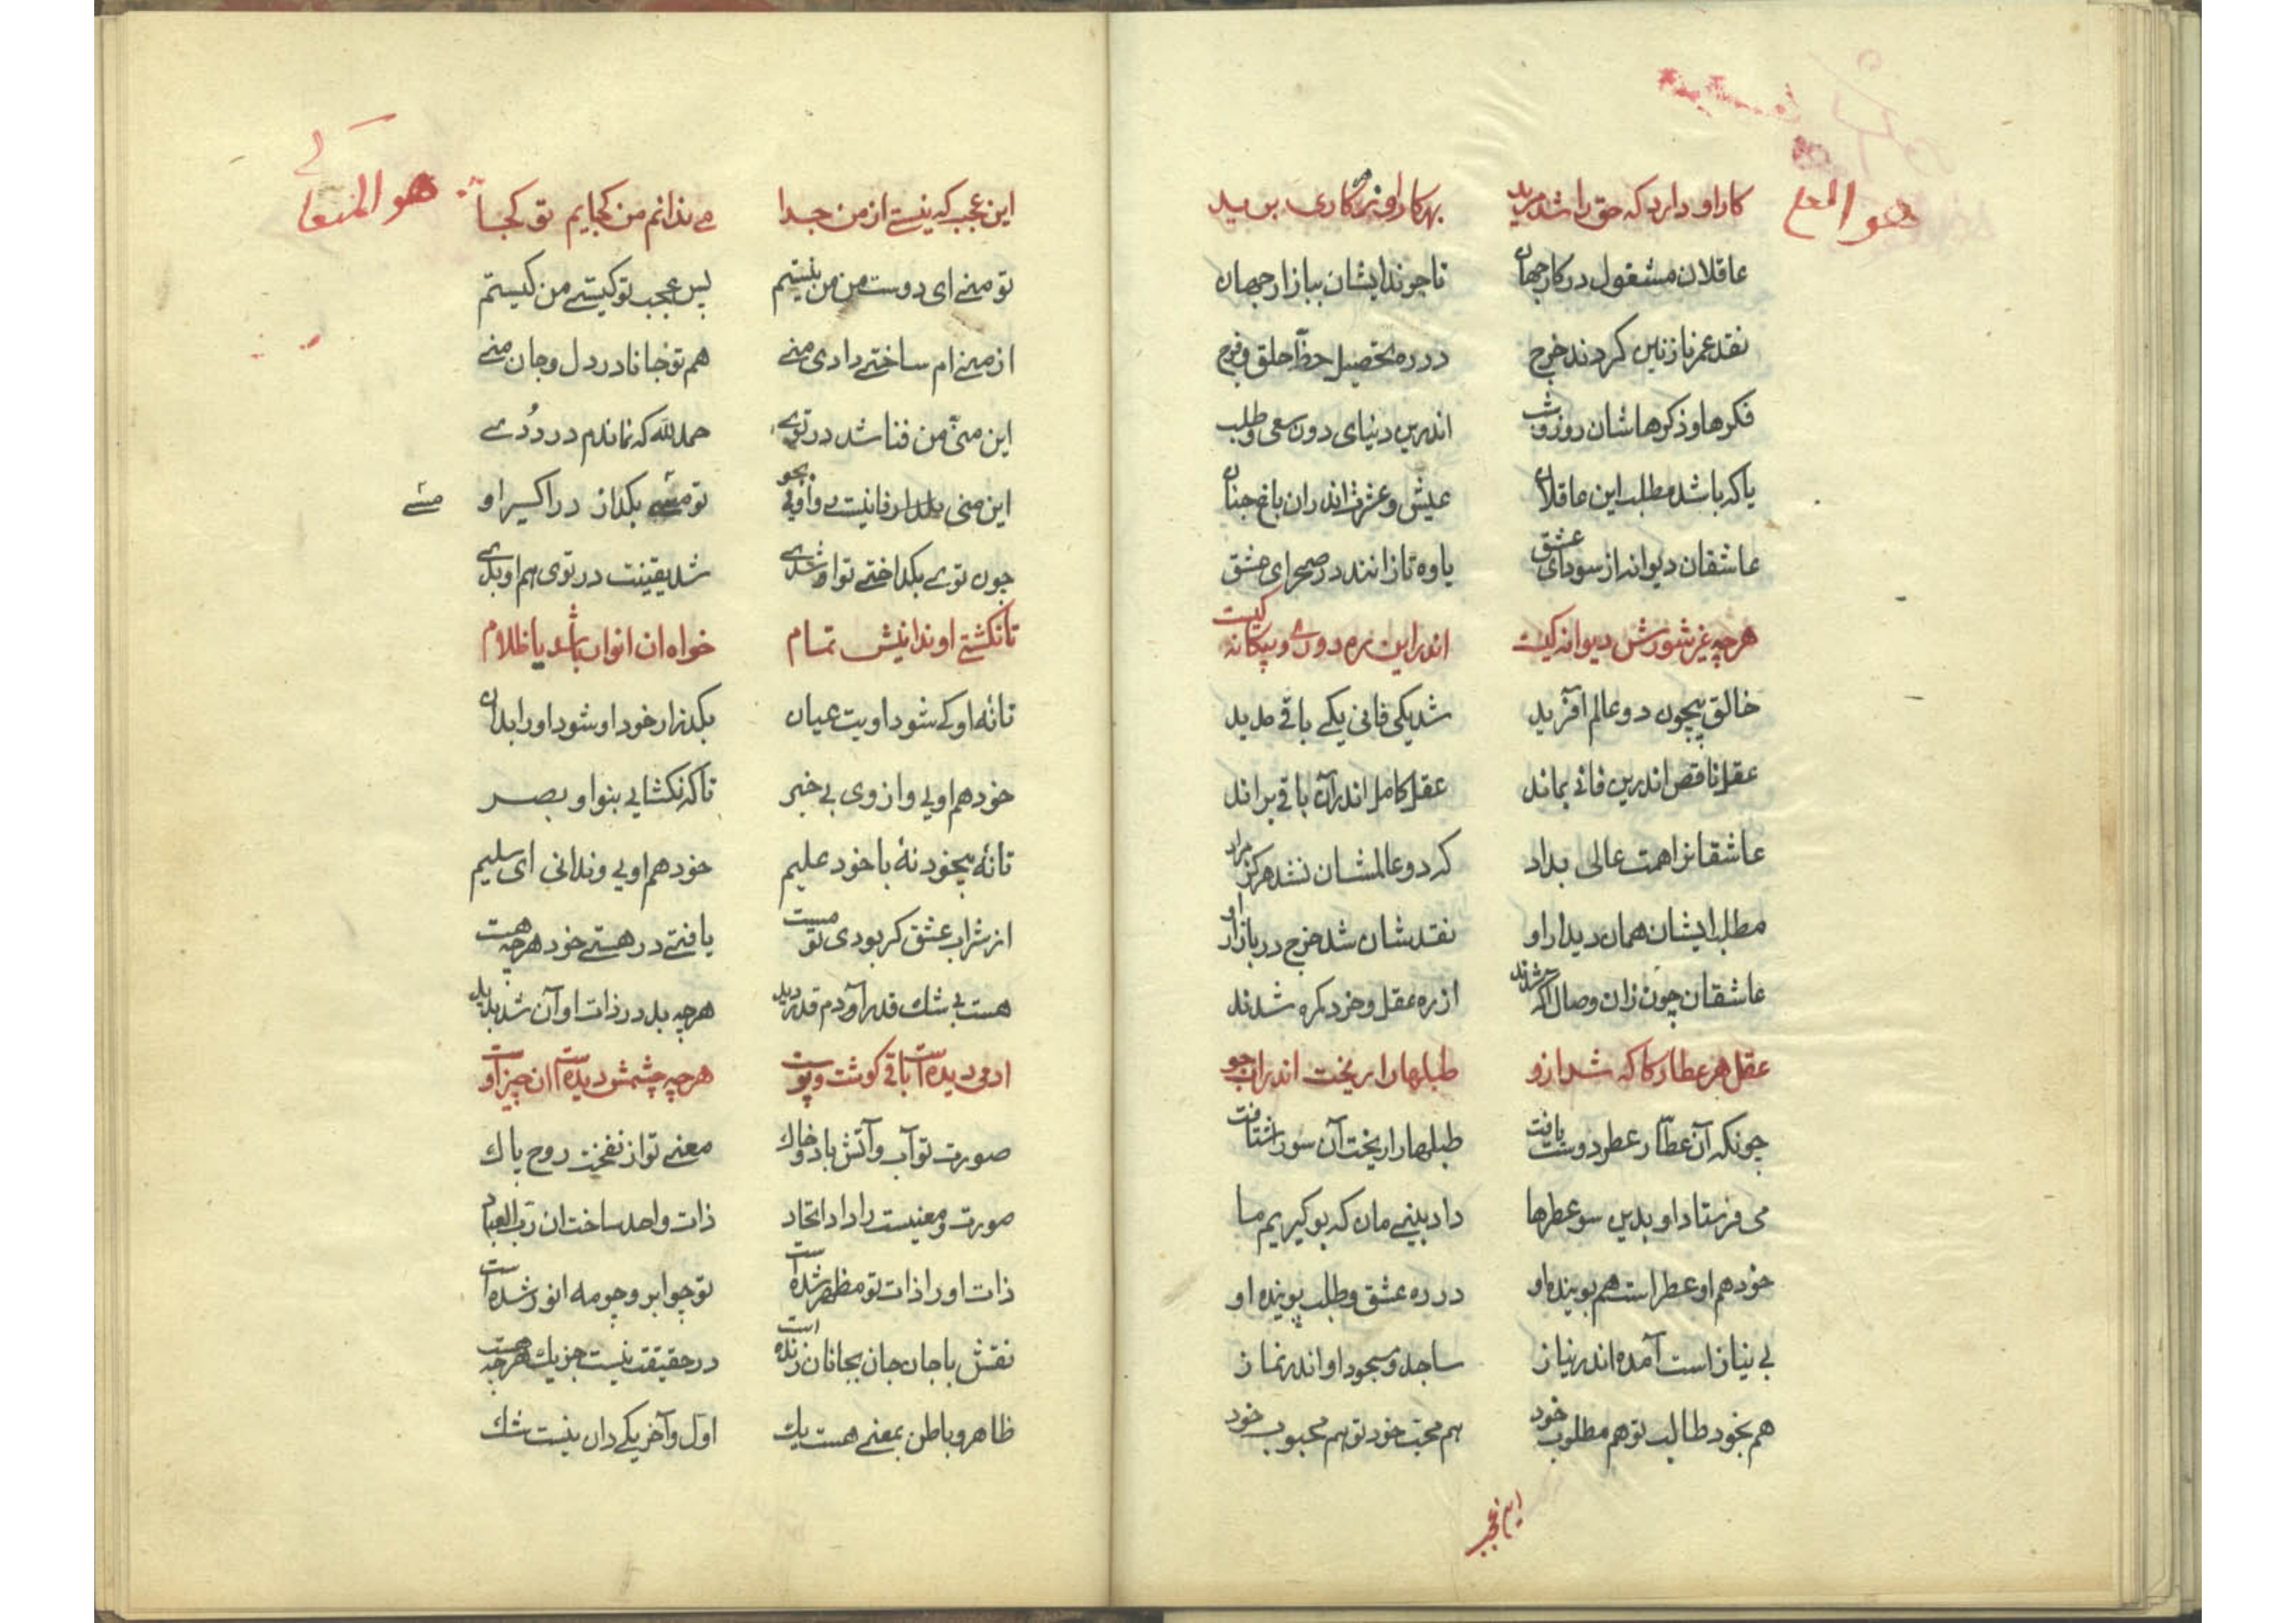 هو
کار او دارد که حق را شد مرید بهر کار او ز هر کاری برید
عاقلان مشغول در کار جهان تا چو ایشان ببازار جهان
نقد عمر نازنین کردند خرج در ره تحصیل حظ حلق و فرج
فکرها و ذکرهاشان روز و شب اندرین دنیای دون سعی و طلب
یا که باشد مطلب این عاقلان عیش و عشرت اندران باغ جنان
عاشقان دیوانه از سودای عشق یاوه تازانند در صحرای عشق
هرچه غیر شورش دیوانه کیست اندر این ره دوری و بیکانه کیست
خالق بیچون دو عالم آفرید شد یکی فانی یکے باقے مدید
عقل ناقص اندرین فانی بماند عقل کامل اندرآن باقے براند
عاشقانرا همت عالی بداد که دو عالمشان نشد هرکز مراد
مطلب ایشان همان دیدار او نقدشان شد خرج در بازار او
عاشقان چون زان وصال آکه شدند از ره عقل و خرد کمره شدند
عقل هر عطار کاکه شد ازو طبلها را ریخت اندر آب جو
چونکه آن عطّار عطر دوست یافت طبلها را ریخت آن سو شتافت
می فرستاد او بدین سو عطرها داد بینے مان که بو کیریم ما
خود هم او عطر است هم بوینده او در ره عشق و طلب پوینده او
بی نیاز است آمده اندر نیاز ساجد و مسجود او اندر نماز
هم بخود طالب تو هم مطلوب خود هم محبّ خود تو هم محبوب خود
این عجب
هو المتعالے
این عجب که نیستے از من جدا مے ندانم من کجایم تو کجا
تو منے ای دوست من من نیستم بس عجب تو کیستے من کیستم
از منے ام ساختے دادی منے هم تو جانا در دل و جان منے
این منی من فنا شد در توے حمد لله که نماندم در دُوے
این منی فانیست وافی بجو تو بکداز در اکسیر او
منے
چون توے بکداختے تو او شدے شد یقینت در توی هم او بدے
تا نکشتے او ندانیش تمام خواه ان انوار باشد یا ظلام
تا نهٔ او کے شود اویت عیان بکذر از خود او شود او را بدان
خود هم اویی و از وی بی خبر تا که نکشایی بنوا و بصر
تا نهٔ بیخود نهٔ با خود علیم خود هم اویی و ندانی ای سلیم
از شراب عشق کر بودی تو مست یافتے در هستے خود هرچه هست
هست بی شک قدر آدم قدر دید هرچه بد در ذات او آن شد پدید
ادمی دیده است باقی کوشت و پوست هرچه چشمش دیده است ان چیز اوست
صورت تو آب و آتش باد و خاك معنے تو از نفخت روح پاك
صورت و معنیست را داد اتحاد ذات واحد ساخت ان ربّ العباد
ذات او را ذات تو مظهر شده است تو چو ابر و چو مه انور شده است
نقش با جان جان بجانان زنده است در حقیقت نیست جز یك هرچه هست
ظاهر و باطن بمعنے هست یك اول و آخر یکے دان نیست شك